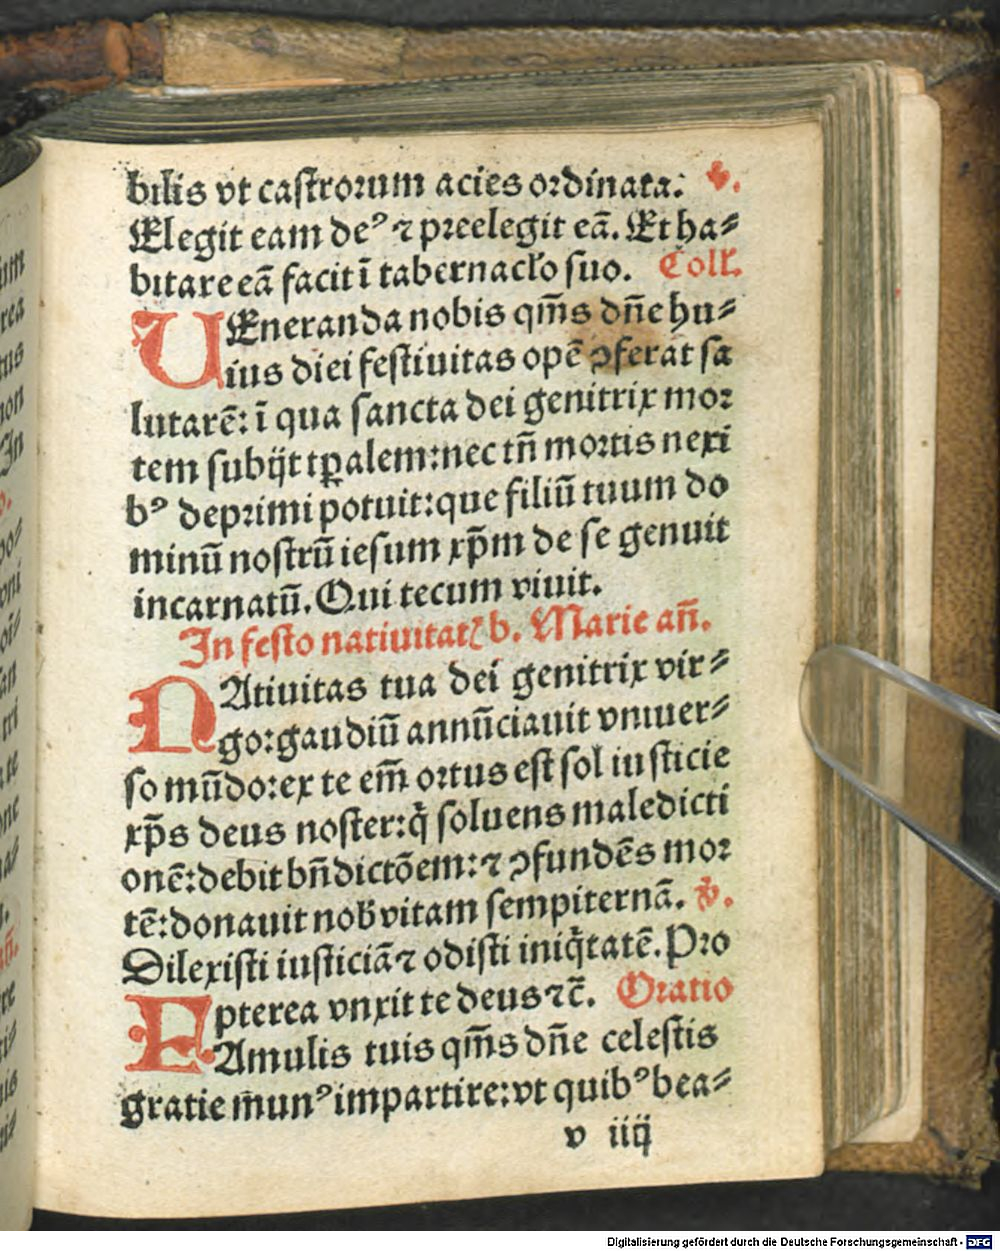 bilis vt castrorum acies ordinata: ℣.
Elegit eam deꝰ ⁊ preelegit eā. Et ha⸗
bitare eā facit ī tabernacl'o suo. Coll'.
VEneranda nobis qm̄s dn̄e hu⸗
ius diei festiuitas opē ꝯferat sa
lutarē: ī qua sancta dei genitrix mor
tem subijt tꝑalem: nec tn̄ mortis nexi
bꝰ deprimi potuit: que filiū tuum do
minū nostrū iesum xp̄m de se genuit
incarnatū. Qui tecum viuit.
In festo natiuitatꝭ b. Marie an̄.
NAtiuitas tua dei genitrix vir⸗
go: gaudiū annūciauit vniuer⸗
so mūdo: ex te em̄ ortus est sol iusticie
xp̄s deus noster: q̄ soluens maledicti
onē: debit bn̄dictōem: ⁊ ꝯfundēs mor
tē: donauit nob̄ vitam sempiternā. ℣.
Dilexisti iusticiā ⁊ odisti iniq̄tatē. Pro
pterea vnxit te deus ⁊c̄. Oratio
FAmulis tuis qm̄s dn̄e celestis
gratie munꝰ impartire: vt quibꝰ bea⸗
v iiij